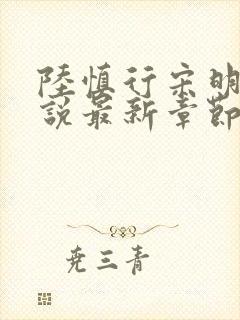 陸慎行宋明
說最新章節
尭三青